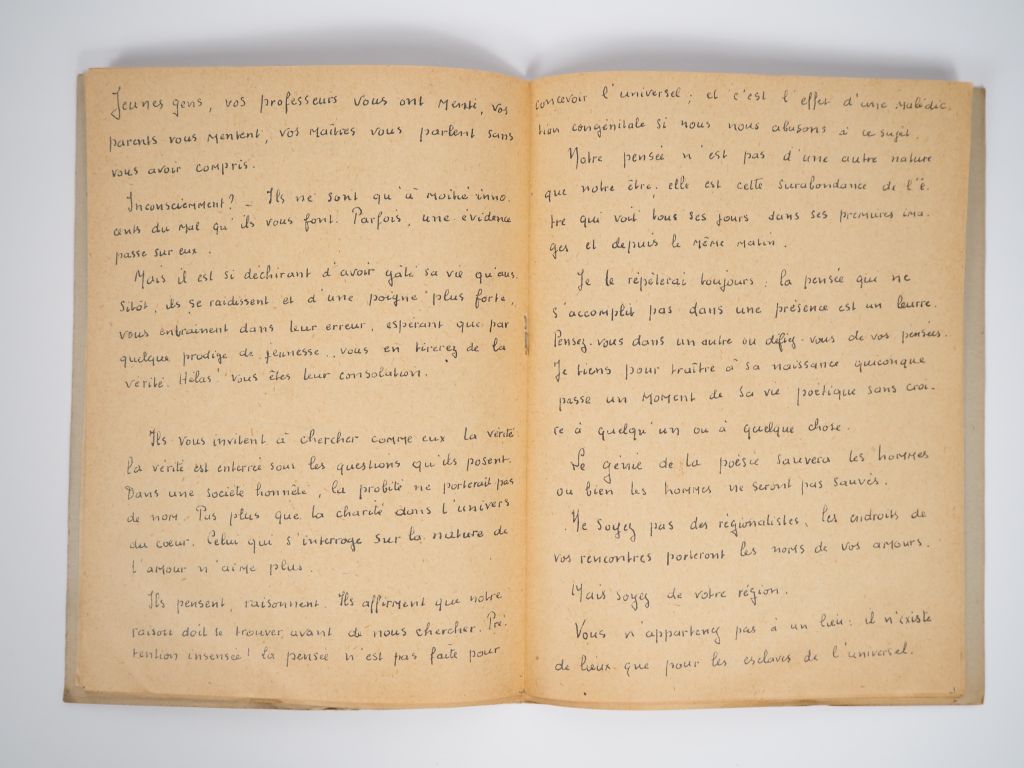 Jeunes gens, vos professeurs vous ont menti, vos
parents vous mentent, vos maîtres vous parlent sans
vous avoir compris.
Inconsciemment? _ Ils ne sont qu'à moitié inno-
cents du mal qu'ils vous font. Parfois, une évidence
passe sur eux.
Mais il est si déchirant d'avoir gâté sa vie qu'aus-
sitôt, ils se raidissent et d'une poigne plus forte,
vous entraînent dans leur erreur, espérant que par
quelque prodige de jeunesse, vous en tirerez de la
vérité. Hélas! vous êtes leur consolation.
Ils vous invitent à chercher comme eux la vérité
la vérité est enterrée sous les questions qu'ils posent.
Dans une société honnête, la probité ne porterait pas
de nom. Pas plus que la charité dans l'univers
du cœur. Celui qui s'interroge sur la nature de
l'amour n'aime plus.
Ils pensent, raisonnent. Ils affirment que notre
raison doit se trouver avant de nous chercher. Pré-
tention insensée! la pensée n'est pas faite pour
concevoir l'universel; et c'est l'effet d'une malédic-
tion congénitale si nous nous abusons à ce sujet.
Notre pensée n'est pas d'une autre nature
que notre être: elle est cette surabondance de l'ê-
tre qui voit tous ses jours dans ses premières ima-
ges et depuis le même matin.
Je le répèterai toujours: la pensée qui ne
s'accomplit pas dans une présence est un leurre.
Pensez-vous dans un autre ou défiez-vous de vos pensées.
Je tiens pour traître à sa naissance quiconque
passe un moment de sa vie poétique sans croi-
re à quelqu'un ou à quelque chose.
Le génie de la poésie sauvera les hommes
ou bien les hommes ne seront pas sauvés.
Ne soyez pas des régionalistes, les endroits de
vos rencontres porteront les noms de vos amours.
Mais soyez de votre région.
Vous n'appartenez pas à un lieu: il n'existe
de lieux que pour les esclaves de l'universel.